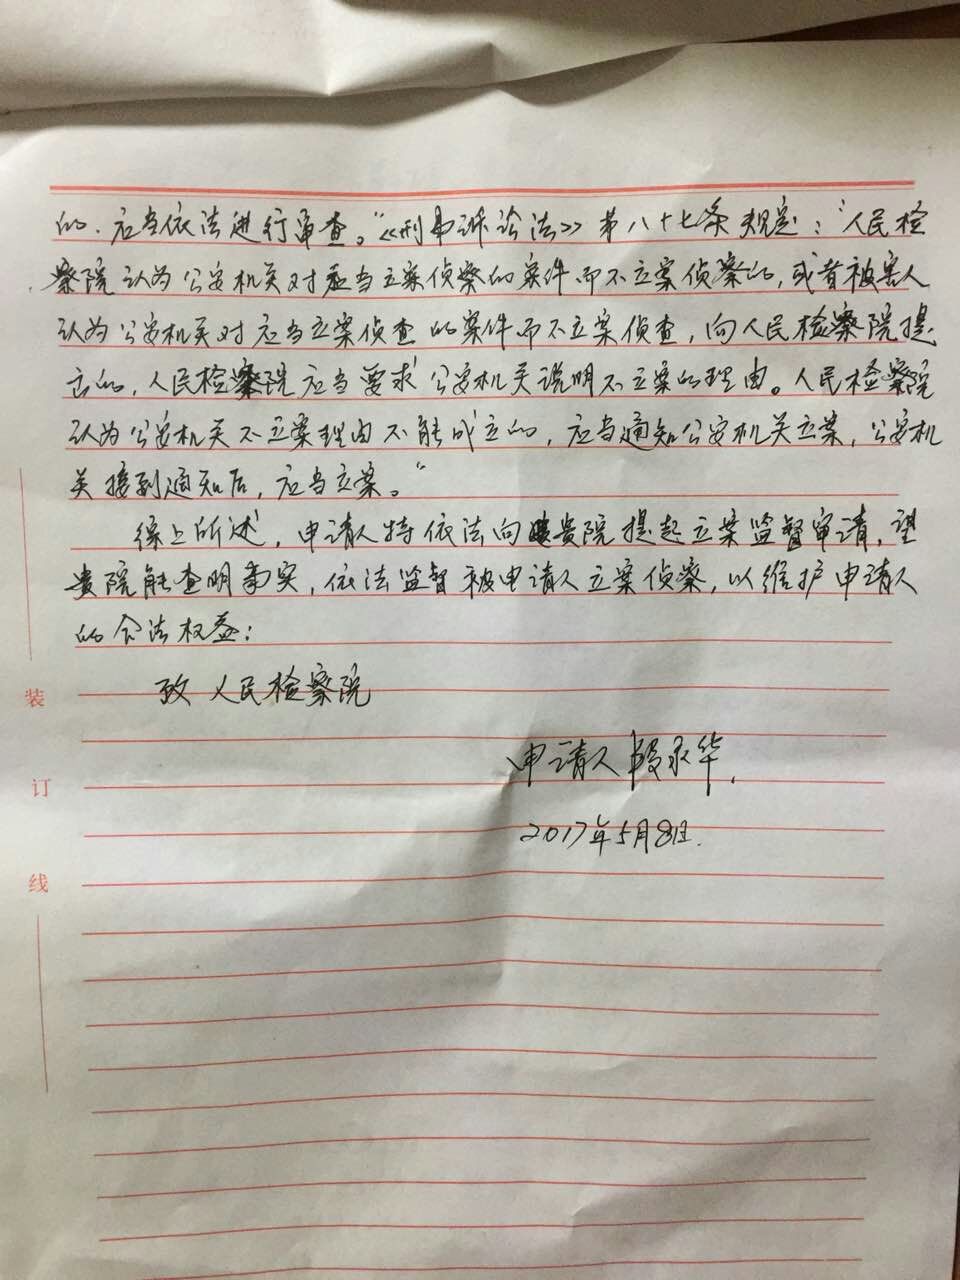 的、应当依法进行审查。"《刑事诉讼法》第八十七条规定："人民检
察院认为公安机关对应当立案侦察的案件而不立案侦察的，或者被害人
认为公安机关对应当立案侦查的案件而不立案侦查，向人民检察院提
出的，人民检察院应当要求公安机关说明不立案的理由。人民检察院
认为公安机关不立案理由不能成立的，应当通知公安机关立案，公安机
关接到通知后，应当立案。"
综上所述，申请人特依法向贵院提起立案监督审请，望
贵院能查明事实，依法监督被申请人立案侦察，以维护申请人
的合法权益；
致人民检察院
申请人段永华
2017年5月8日
装
订
线